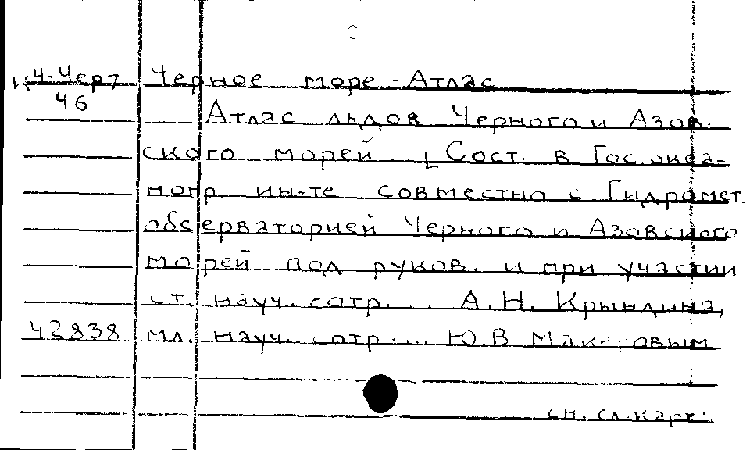 4-Черт Черное море - Атлас
46 Атлас льдов Черного и Азов-
ского морей. [Сост. в Гос. океа-
ногр. ин-те совместно с Гидромет.
обсерваторией Черного и Азовского
морей под руков. и при участии
ст. науч. сотр. ... А.Н. Крындина,
42838 мл. науч. сотр. ... Ю.В.
см. сл. карт.